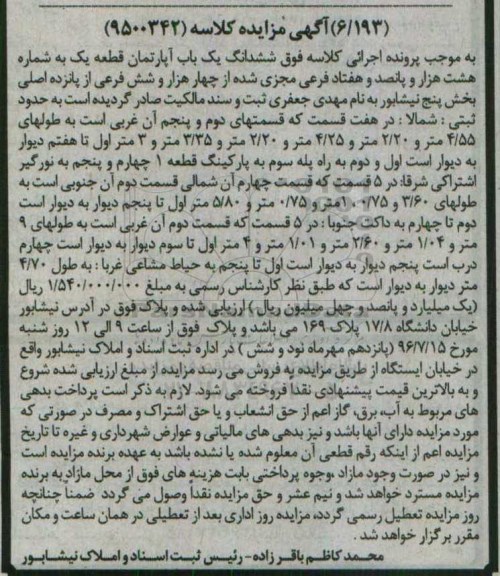 (۶/۱۹۳) آگهی مزایده کلاسه (۹۵۰۰۳۴۲)
به موجب پرونده اجرائی کلاسه فوق ششدانگ یک باب آپارتمان قطعه یک به شماره
هشت هزار و پانصد و هفتاد فرعی مجزی شده از چهار هزار و شش فرعی از پانزده اصلی
بخش پنج نیشابور به نام مهدی جعفری ثبت و سند مالکیت صادر گردیده است به حدود
ثبتی : شمالا : در هفت قسمت که قسمتهای دوم و پنجم آن غربی است به طولهای
۴/۵۵ متر و ۲/۲۰ متر و ۴/۲۵ متر و ۲/۲۰ متر و ۳/۳۵ متر و ۳ متر اول تا هفتم دیوار
به دیوار است اول و دوم به راه پله سوم به پارکینگ قطعه ۱ چهارم و پنجم به نورگیر
اشتراکی شرقا: در ۵ قسمت که قسمت چهارم آن شمالی قسمت دوم آن جنوبی است به
طولهای ۳/۶۰ و ۰/۷۵ و ۱متر و ۰/۷۵ متر و ۵/۸۰ متر اول تا پنجم دیوار به دیوار است
دوم تا چهارم به داکت جنوبا : در ۵ قسمت که قسمت دوم آن غربی است به طولهای ۹
متر و ۱/۰۴ متر و ۲/۶۰ متر و ۱/۰۱ متر و ۴ متر اول تا سوم دیوار به دیوار است چهارم
درب است پنجم دیوار به دیوار است اول تا پنجم به حیاط مشاعی غربا : به طول ۴/۷۰
متر دیوار به دیوار است که طبق نظر کارشناس رسمی به مبلغ ۱/۵۴۰/۰۰۰/۰۰۰ ریال
(یک میلیارد و پانصد و چهل میلیون ریال ) ارزیابی شده و پلاک فوق در آدرس نیشابور
خیابان دانشگاه ۱۷/۸ پلاک ۱۶۹ می باشد و پلاک فوق از ساعت ۹ الی ۱۲ روز شنبه
مورخ ۹۶/۷/۱۵ (پانزدهم مهرماه نود و شش ) در اداره ثبت اسناد و املاک نیشابور واقع
در خیابان ایستگاه از طریق مزایده به فروش می رسد مزایده از مبلغ ارزیابی شده شروع
و به بالاترین قیمت پیشنهادی نقدا فروخته می شود. لازم به ذکر است پرداخت بدهی
های مربوط به آب، برق، گاز اعم از حق انشعاب و یا حق اشتراک و مصرف در صورتی که
مورد مزایده دارای آنها باشد و نیز بدهی های مالیاتی و عوارض شهرداری و غیره تا تاریخ
مزایده اعم از اینکه رقم قطعی آن معلوم شده یا نشده باشد به عهده برنده مزایده است
و نیز در صورت وجود مازاد ،وجوه پرداختی بابت هزینه های فوق از محل مازاد به برنده
مزایده مسترد خواهد شد و نیم عشر و حق مزایده نقداً وصول می گردد ضمناً چنانچه
روز مزایده تعطیل رسمی گردد، مزایده روز اداری بعد از تعطیلی در همان ساعت و مکان
مقرر برگزار خواهد شد .
محمد کاظم باقر زاده - رئیس ثبت اسناد و املاک نیشابور